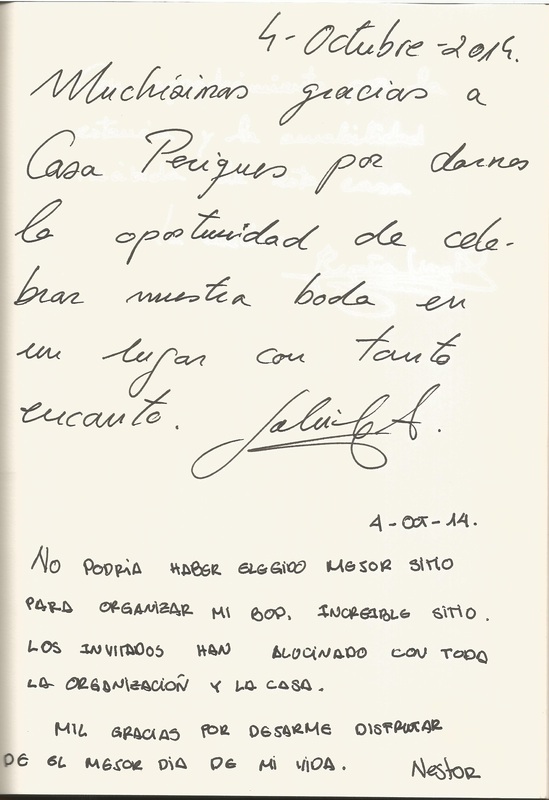 4-Octubre-2014.
Muchísimas gracias a
Casa Perigues por darnos
la oportunidad de cele-
brar nuestra boda en
un lugar con tanto
encanto.
4-OCT-14.
NO PODRÍA HABER ELEGIDO MEJOR SITIO
PARA ORGANIZAR MI BODA, INCREIBLE SITIO.
LOS INVITADOS HAN ALUCINADO CON TODA
LA ORGANIZACIÓN Y LA CASA.
MIL GRACIAS POR DEJARME DISFRUTAR
DE EL MEJOR DÍA DE MI VIDA. Nestor